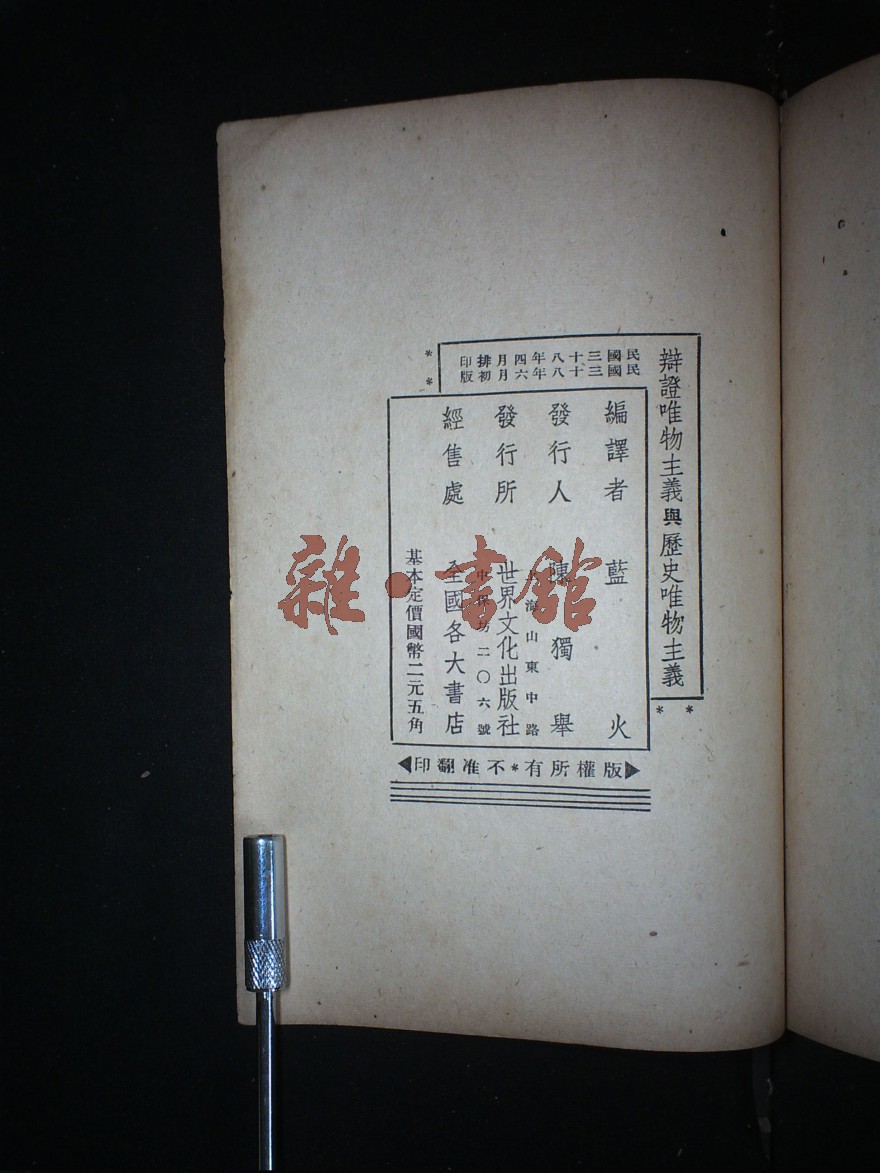 辯證唯物主義與歷史唯物主義
民國三十八年四月排印
民國三十八年六月初版
**
編譯者 藍火
發行人 陳獨舉
發行所 世界文化出版社
上海山東中路
中保坊二〇六號
經售處 全國各大書店
基本定價國幣二元五角
**
版權所有*不准翻印
雜·書館